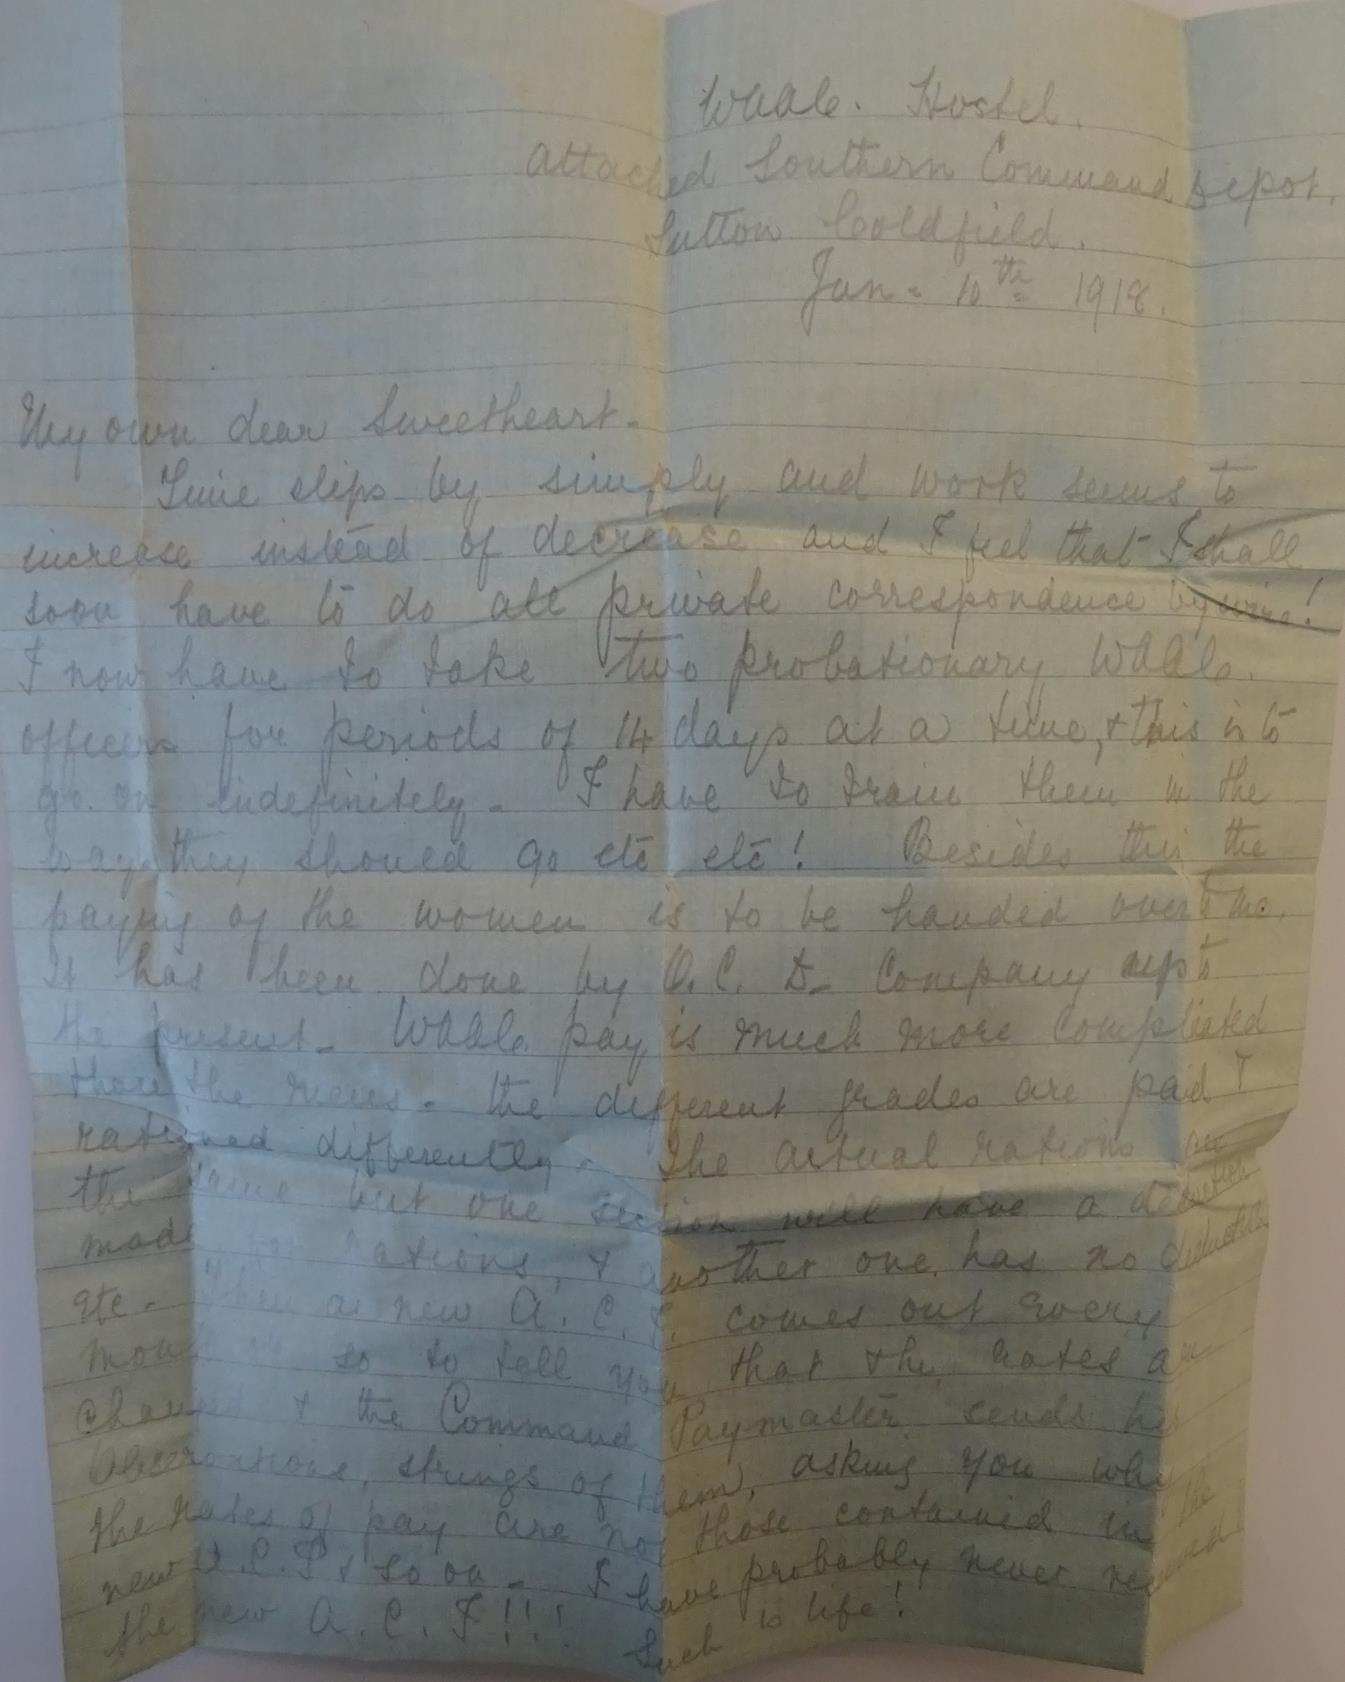 WAAC. Hostel.
Attached Southern Command Depot.
Sutton Coldfield.
Jan - 10th 1918.
My own dear Sweetheart -
Time slips by simply and work seems to
increase instead of decrease and I feel that I shall
soon have to do all private correspondence by wire!
I now have to take two probationary WAAC.
officers for periods of 14 days at a time, & this is to
go on indefinitely - I have to train them in the
way they should go etc etc! Besides this the
paying of the women is to be handed over to me.
It has been done by O.C. D. Company up to
the present - WAAC. pay is much more complicated
than the mens - the different grades are paid &
rationed differently - The actual rations are
the same but one section will have a deduction
made for rations, & another one has no deduction
etc - Then a new A.C.I. comes out every
month so to tell you that the rates are
changed & the Command Paymaster sends his
observations, strings of them, asking you why
the rates of pay are not those contained in the
new A.C.I & so on - I have probably never received
the new A.C.I!!! Such is life!